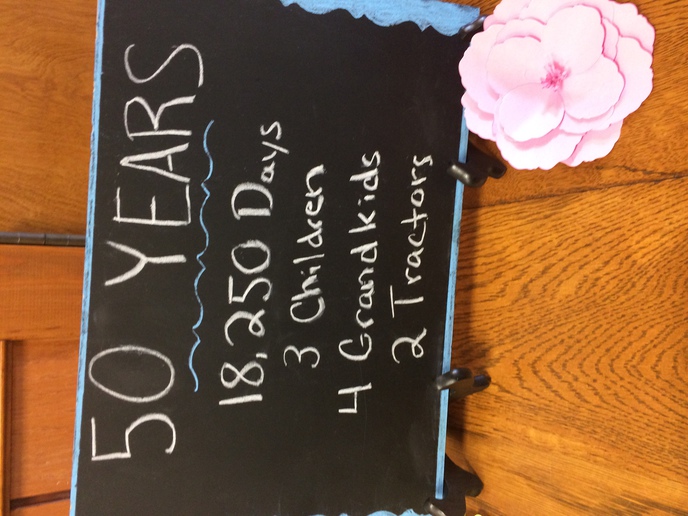 50 YEARS
18,250 Days
3 Children
4 Grandkids
2 Tractors